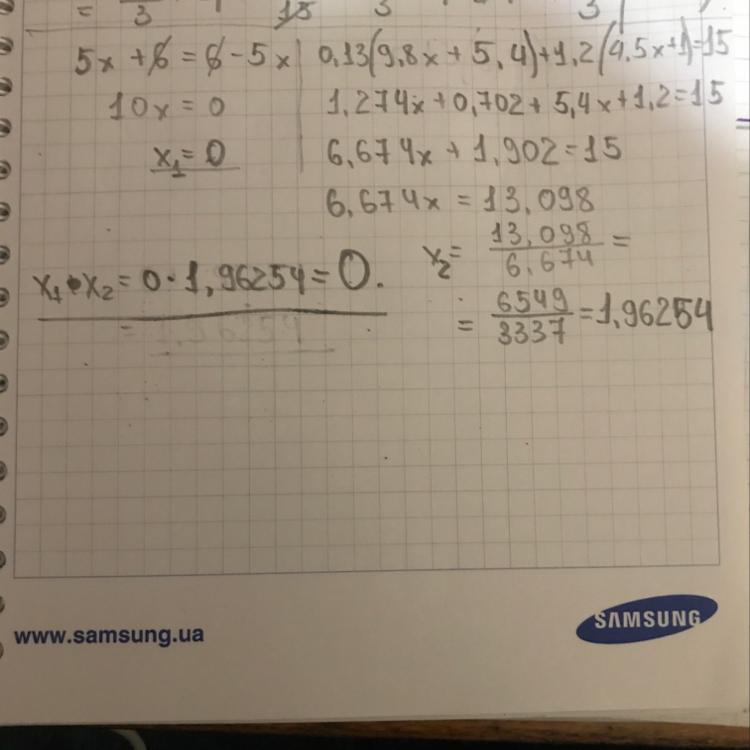 = 3 18 3 3
5x + 6 = 6 - 5x
10x = 0
x₁ = 0
0,13(9,8x + 5,4)+1,2(4,5x+1)=15
1,274x+0,702+5,4x+1,2=15
6,674x + 1,902=15
6,674x = 13,098
x₂= 13,098/6,674 =
= 6549/3337 =1,96254
x₁ • x₂ = 0 · 1,96254 = 0.
= 1,96254
www.samsung.ua
SAMSUNG